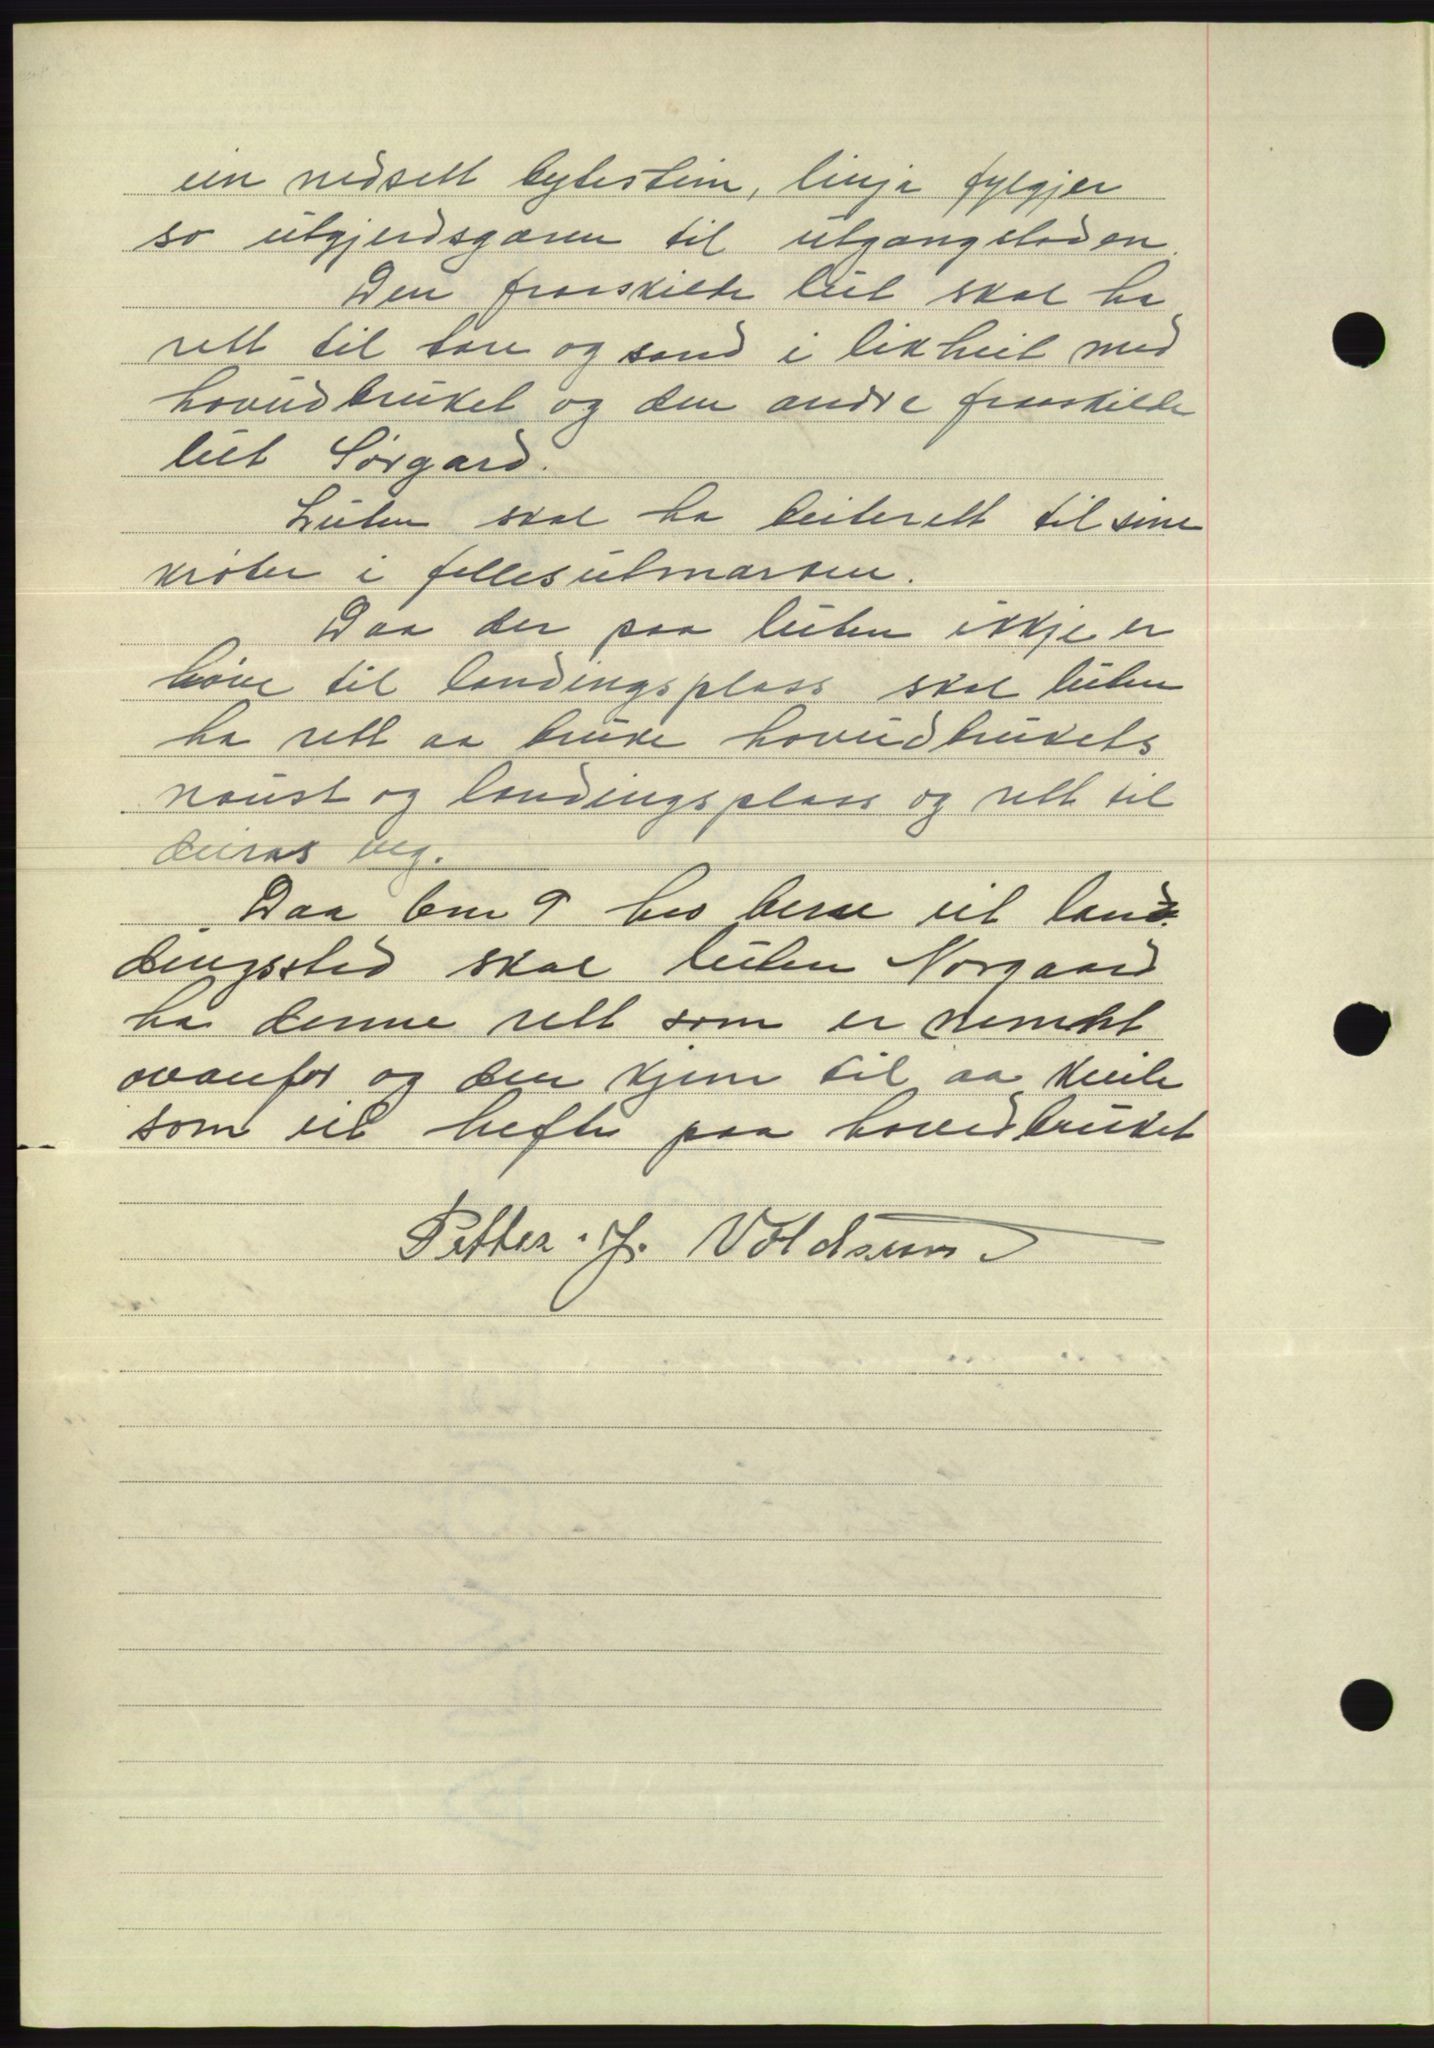 ein nedsett bytestein, linja fylgjer
so utgjerdsgaren til utgangsloden.
Den fraaskilde lut skal ha
rett til tare og sand i likheit med
hovudbruket og den andre fraaskilde
lut Sørgard.
Luten skal ha beiterett til sine
krøter i fellesutmarken.
Daa der paa luten ikkje er
høve til landingsplass skal luten
ha rett aa bruke hovudbrukets
naust og landingsplass og rett til
deiras veg.
Daa bnr 9 hev berre eit land-
dingssted skal luten Norgaard
ha denne rett som er nemnt
ovanfor og den kjem til aa kvile
som eit hefte paa hovedbruket
Petter J. Voldsund